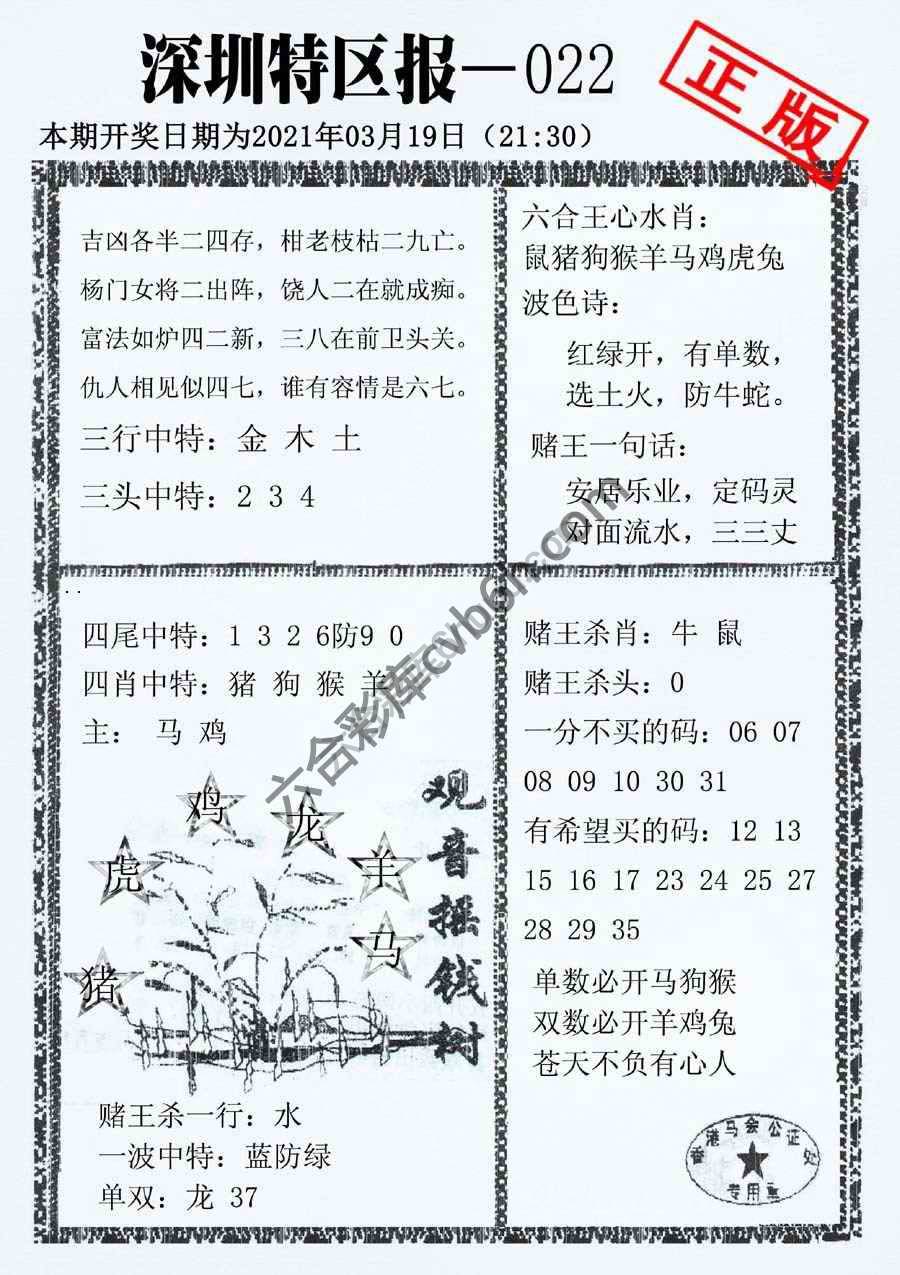 深圳特区报—022
正版
本期开奖日期为2021年03月19日（21:30）
吉凶各半二四存，柑老枝枯二九亡。
杨门女将二出阵，饶人二在就成痴。
富法如炉四二新，三八在前卫头关。
仇人相见似四七，谁有容情是六七。
三行中特：金 木 土
三头中特：2 3 4
六合王心水肖：
鼠猪狗猴羊马鸡虎兔
波色诗：
红绿开，有单数，
选土火，防牛蛇。
赌王一句话：
安居乐业，定码灵
对面流水，三三丈
四尾中特：1 3 2 6防9 0
四肖中特：猪 狗 猴 羊
主： 马 鸡
鸡
龙
虎
羊
马
猪
观音摇钱树
赌王杀一行：水
一波中特：蓝防绿
单双：龙 37
赌王杀肖：牛 鼠
赌王杀头：0
一分不买的码：06 07
08 09 10 30 31
有希望买的码：12 13
15 16 17 23 24 25 27
28 29 35
单数必开马狗猴
双数必开羊鸡兔
苍天不负有心人
香港马会公证处
专用章
六合彩库cvb6h.com